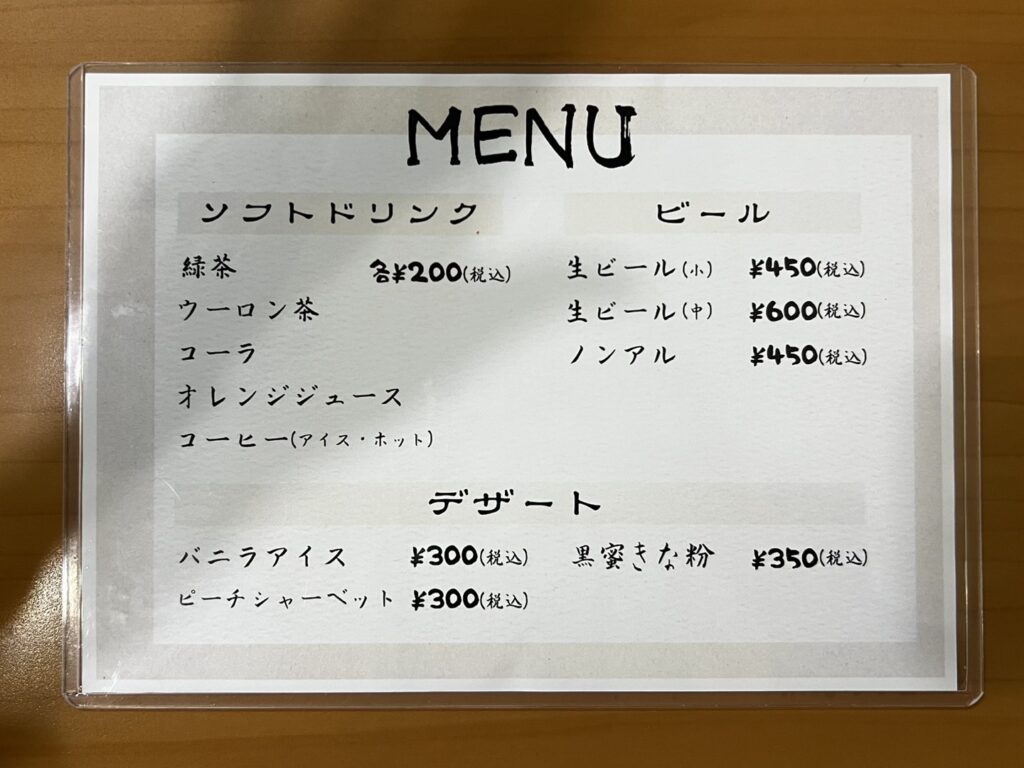 MENU
ソフトドリンク
緑茶 各¥200(税込)
ウーロン茶
コーラ
オレンジジュース
コーヒー(アイス・ホット)
ビール
生ビール(小) ¥450(税込)
生ビール(中) ¥600(税込)
ノンアル ¥450(税込)
デザート
バニラアイス ¥300(税込)
ピーチシャーベット ¥300(税込)
黒蜜きな粉 ¥350(税込)